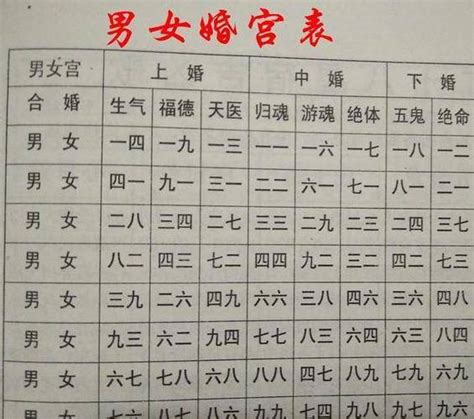 男女婚宫表
男女宫 上 婚 中 婚 下 婚
合 婚 生气 福德 天医 归魂 游魂 绝体 五鬼 绝命
男 女 一四 一九 一三 一一 一六 一七 一八 一二
男 女 四一 九一 三一 二二 六一 七一 八一 二一
男 女 二八 三四 二七 三三 二九 二三 二四 三七
男 女 八二 四三 七二 四四 九二 三二 四二 七三
男 女 三九 二六 四九 六六 三八 四六 三六 四八
男 女 九三 六二 九四 七七 八三 六四 六三 八四
男 女 六七 七八 六八 八八 四七 八九 七九 六九
男 女 七六 八七 八六 九九 七四 九八 九七